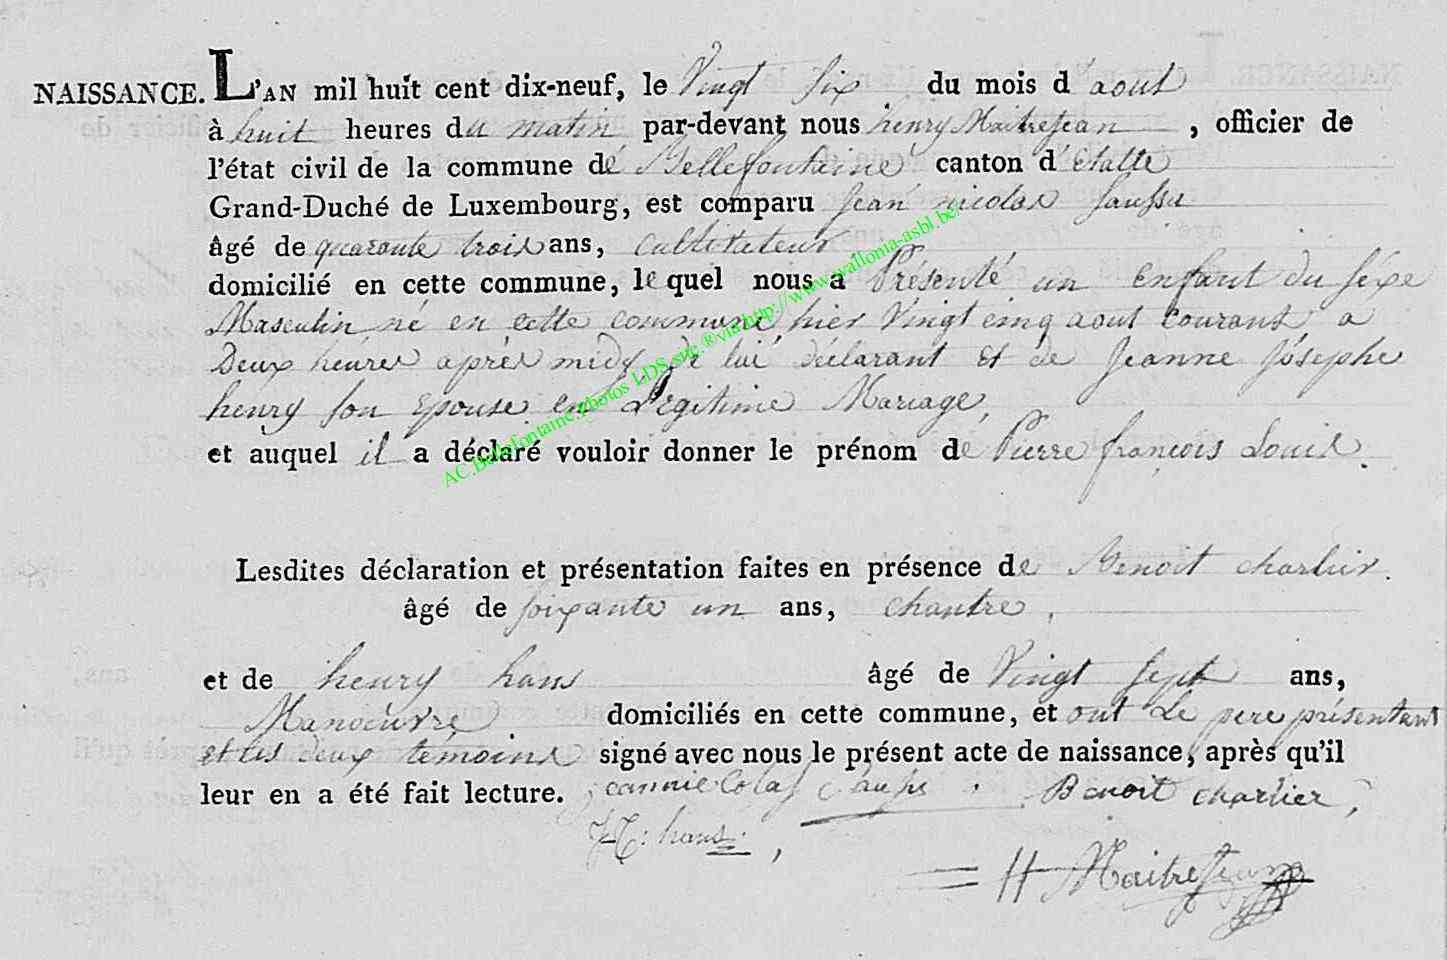 NAISSANCE. L'AN mil huit cent dix-neuf, le Vingt Six du mois d'aout
à huit heures du matin par-devant nous henry MaitreJean, officier de
l'état civil de la commune dé Bellefontaine canton d'étalle
Grand-Duché de Luxembourg, est comparu Jean nicolas
âgé de quaronte trois ans, Cultivateur
domicilié en cette commune, le quel nous a Présenté un enfant du Séxe
Masculin né en cette commune hier Vingt cinq aout courant, a
Deux heures après midy de lui déclarant et de Jeanne Jósephe
henry Son Epouse en Légitime Mariage,
et auquel il a déclaré vouloir donner le prénom de Pierre françois Louis.
AC.Bellefontaine.Photos LDS.svc.® via http://www.wallonia-asbl.be/
Lesdites déclaration et présentation faites en présence de Benoit charlier.
âgé de Soixante un ans, chantre,
et de henry hans âgé de Vingt Sept ans,
Manoeuvre domiciliés en cette commune, et ont Le pere présentant
et les deux témoins signé avec nous le présent acte de naissance, après qu'il
leur en a été fait lecture. jeannie Colas Benoit charlier,
H: hans,
H MaitreJean